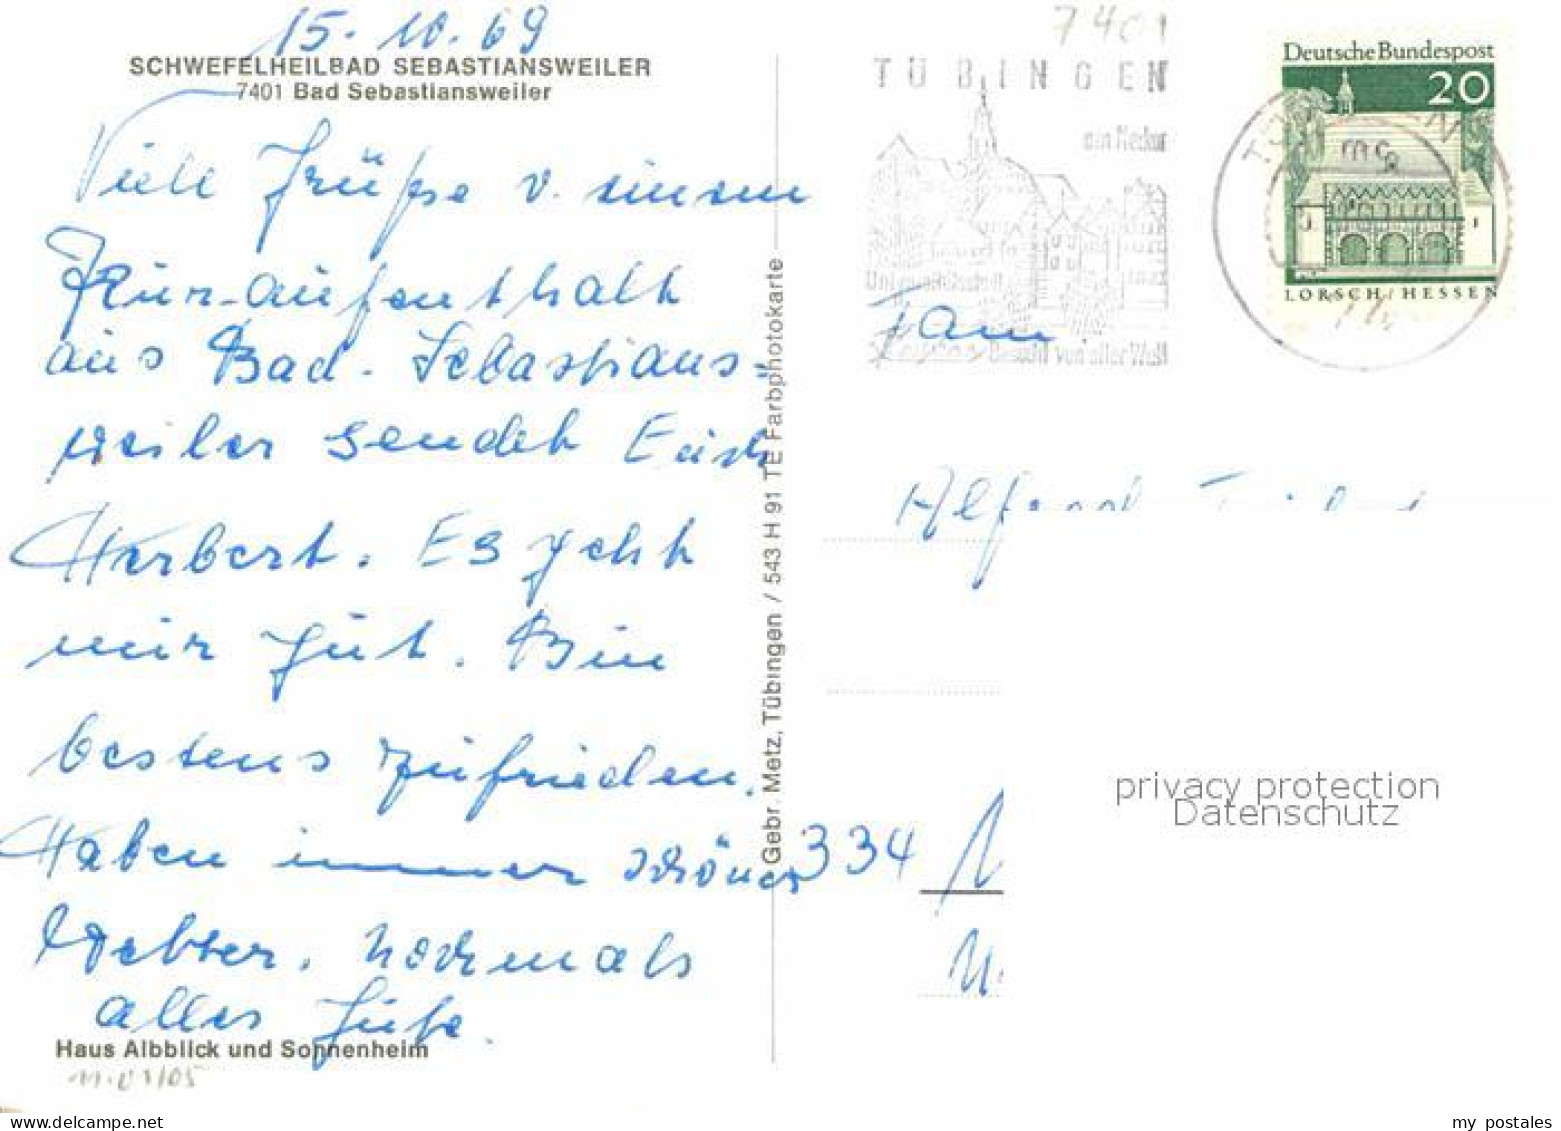 15.10.69
SCHWEFELHEILBAD SEBASTIANSWEILER
7401 Bad Sebastiansweiler
Viele Grüße v. einem
Kur-aufenthalt
aus Bad-Sebastians=
weiler sendet Euch
Herbert. Es geht
mir gut. Bin
bestens zufrieden.
Haben immer schönes
Wetter. Nochmals
alles Gute.
Haus Albblick und Sonnenheim
11.01/05
Gebr. Metz, Tübingen / 543 H 91 TE Farbphotokarte
7401
TÜBINGEN
am Neckar
Universitätsstadt
Besucht von aller Welt
Deutsche Bundespost
20
LORSCH/HESSEN
Fam.
Alfred
334
privacy protection
Datenschutz
my postales